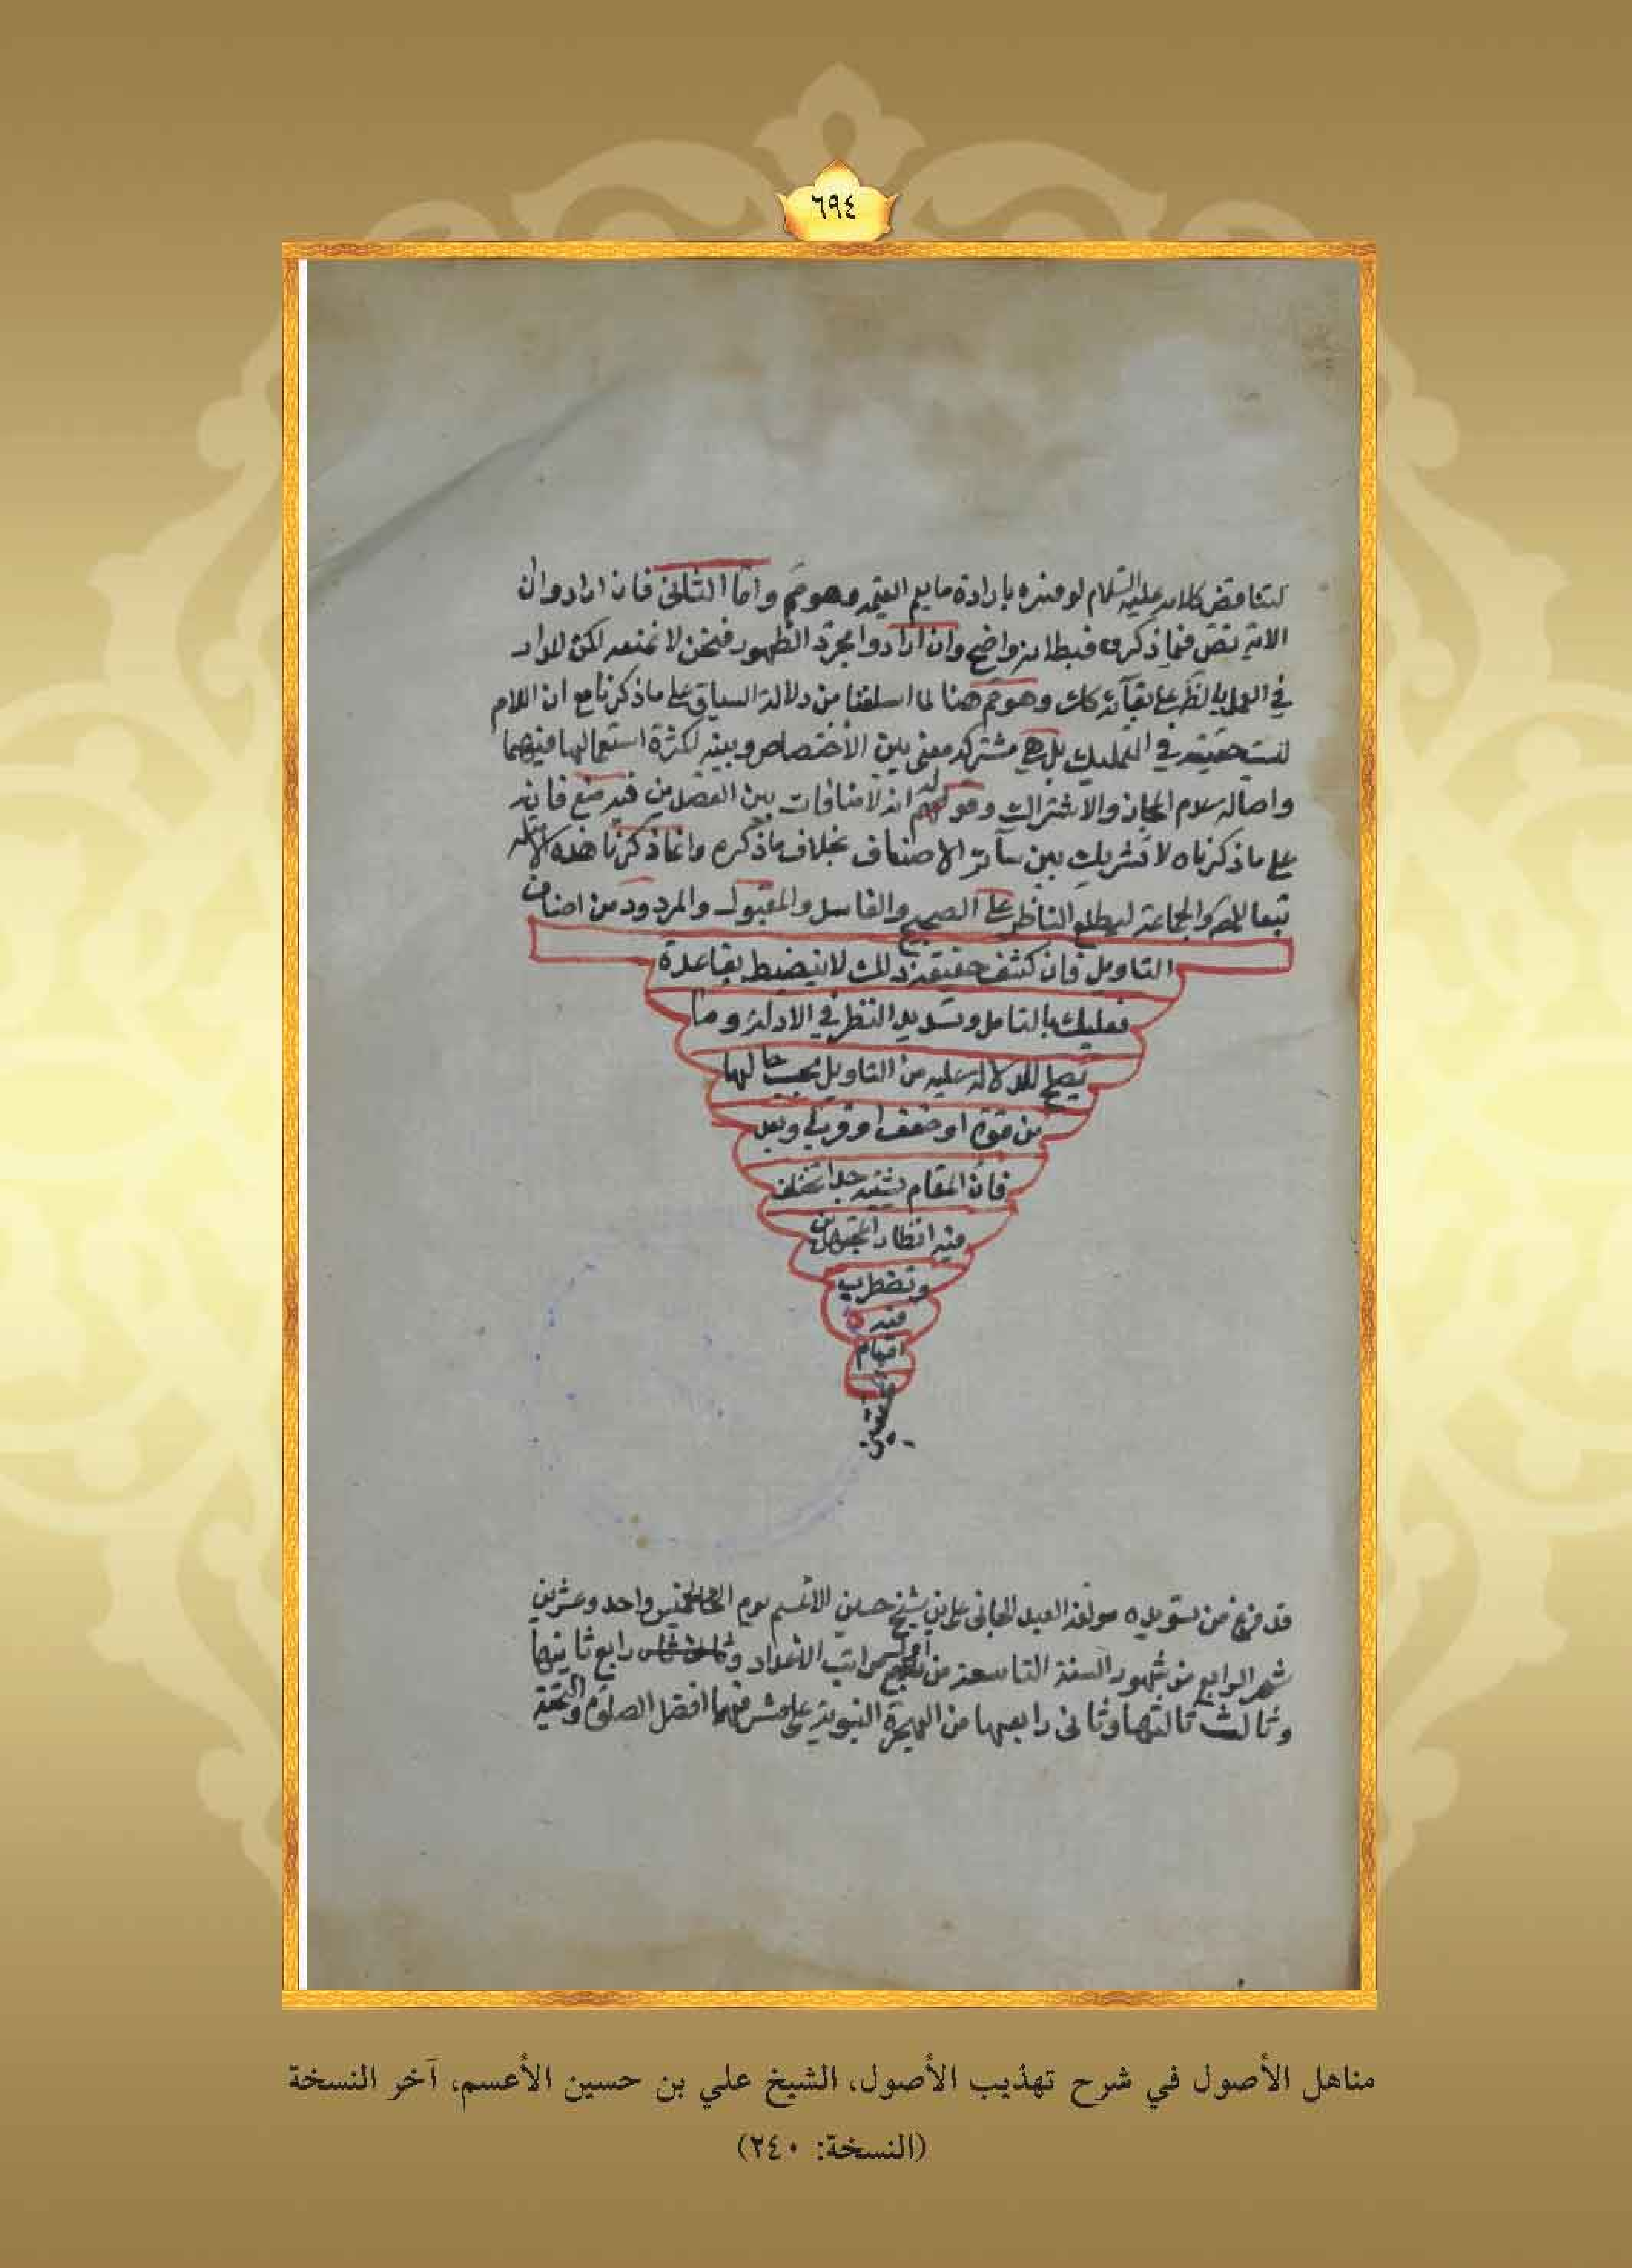 ٦٩٤
لتناقض كلامه عليه السلام لو فسره بارادة ما يعم القيمة وهو مم واما الثاني فان ارادوا ان
الاية نص فيما ذكروه فبطلانه واضح وان ارادوا مجرد الظهور فنحن لا نمنعه لكن المراد
في العمل بالظ على بقائه كك وهو مم هنا لما اسلفنا من دلالة السياق على ما ذكرنا مع ان اللام
ليست حقيقة في التمليك بل هي مشتركة معنى بين الاختصاص وبينه لكثرة استعمالها فيهما
واصالة عدم المجاز والاشتراك وقولهم انه لا منافات بين القصدين فيه منع فانه
على ما ذكرناه لا تشريك بين سائر الاصناف بخلاف ما ذكره وانما ذكرنا هذه الامثلة
تبعا للمص والجماعة ليطلع الناظر على الصحيح والفاسد والمقبول والمردود من اصناف
التاويل فان كشف حقيقة ذلك لا ينضبط بقاعدة
فعليك بالتامل وتسديد النظر في الادلة وما
يصلح للدلالة عليه من التاويل بحسب حالها
من قوة او ضعف او قرب او بعد
فان المقام جدا تختلف
فيه انظار المجتهدين
وتضطرب
فيه
افهام
المحققين
قد فرغ من تسويده مولفه العبد الجاني علي بن شيخ حسين الاعسم يوم الخميس واحد وعشرين
شهر الرابع من شهور السنة التاسعة من اول مراتب الاعداد و رابع ثانيها
وثالث ثالثها وثاني رابعها من الهجرة النبوية على مشرفها افضل الصلوة والتحية
مناهل الأصول في شرح تهذيب الأصول، الشيخ علي بن حسين الأعسم، آخر النسخة
(النسخة: ٢٤٠)